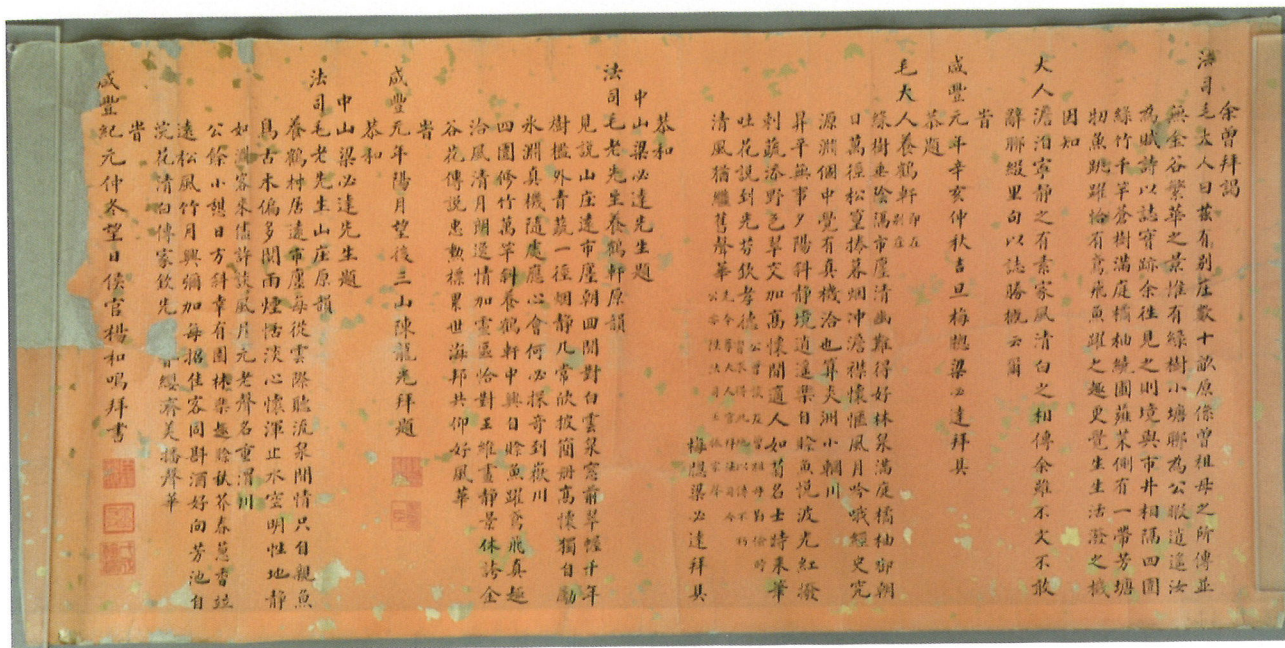 余曾拜謁
法司毛大人曰茲有別庄數十畝原係曾祖母之所傳並
無金谷繁華之景惟有綠樹小塘聊為公暇逍遙汝
為賦詩以誌寶跡余往見之則境與市井相隔四圍
綠竹千竿蒼樹滿庭橘柚繞圃蔬菜側有一帶芳塘
物魚跳躍恰有鳶飛魚躍之趣更覺生生活潑之機
因知
大人澹泊寧靜之有素家風清白之相傳余雖不文不敢
辭聯綴里句以誌勝概云爾
旹
咸豐元年辛亥仲秋吉旦梅牕梁必達拜具
恭題
毛大人養鶴軒即在別庄
綠樹垂陰隔市廛清幽難得好林泉滿庭橘柚御朝
日萬徑松篁捲暮烟冲澹襟懷愜風月吟哦經史究
源淵個中覺有真機洽也算炎洲小輞川
昇平無事夕陽斜靜境逍遙樂自賒魚悅波光紅撥
剌蔬添野色翠交加高懷閒適人如菊名士時來筆
吐花說到先芬欽孝德
清風猶繼舊聲華
梅牕梁必達拜具
恭和
中山梁必達先生題
法司毛老先生養鶴軒原韻
見說山庄遠市廛朝回閒對白雲泉窓前翠幄千年
樹檻外青蔬一徑烟靜几常欣披簡册高懷獨自勵
氷淵真機隨處應心會何必探奇到嶽川
四園修竹萬竿斜養鶴軒中興自賒魚躍鳶飛真趣
洽風清月朗逸情加靈區恰對王維畫靜景休誇金
谷花傳說忠勳標累世海邦共仰好風華
旹
咸豐元年陽月望後三山陳龍光拜題
恭和
中山梁必達先生題
法司毛老先生山庄原韻
養鶴村居遠市廛每從雲際聽流泉閒情只自親魚
鳥古木偏多閱雨煙恬淡心懷渾止水空明性地靜
如淵客來儘許談風月元老聲名重渭川
公餘小憩日方斜幸有園林樂趣賒秋芥春蔥香竝
遠松風竹月興彌加每招佳客同斟酒好向芳池自
浣花清白傳家欽先
纓齊美播聲華
旹
咸豐紀元仲冬望日侯官楊和鳴拜書